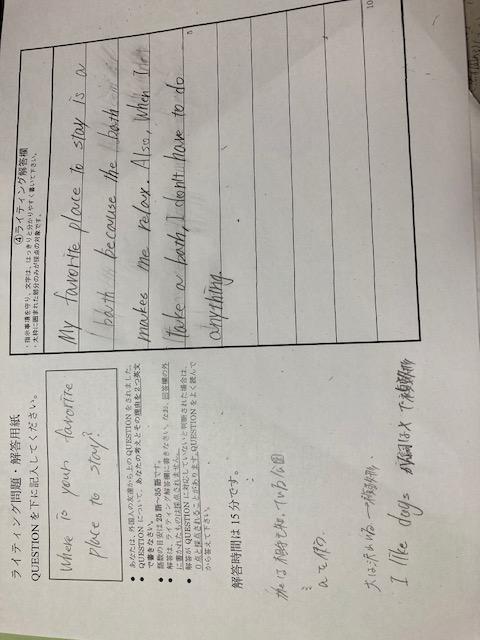 ライティング問題・解答用紙
QUESTION を下に記入してください。
Where is your favorite
place to stay?
● あなたは、外国人の友達から上の QUESTION をされました。
● QUESTION について、あなたの考えとその理由を2つ英文で書きなさい。
● 語数の目安は 25 語～35 語です。
● 解答は、ライティング解答欄に書きなさい。なお、回答欄の外に書かれたものは採点されません。
● 解答が QUESTION に対応していないと判断された場合は、0点と採点されることがあります。QUESTION をよく読んでから答えて下さい。
解答時間は 15 分です。
I like dogs
④ライティング解答欄
・指示事項を守り、文字は、はっきりと分かりやすく書いて下さい。
・太枠に囲まれた部分のみが採点の対象です。
My favorite place to stay is a
bath because the bath
makes me relax. Also, When I
take a bath, I don't have to do
5
anything
10